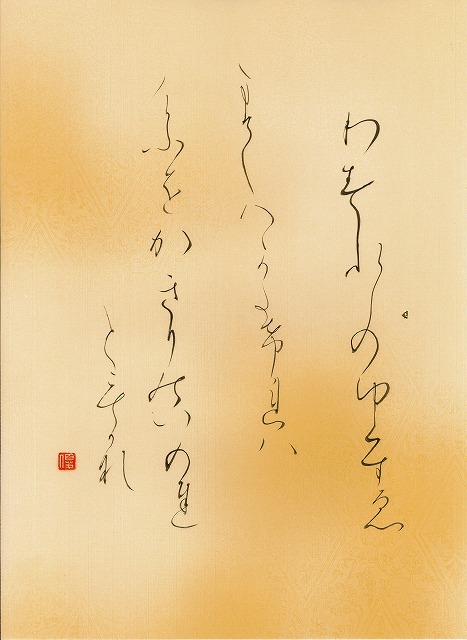 わすれしのゆくすゑ
まてハかたけれハ
けふをかきりのいのち
ともかな